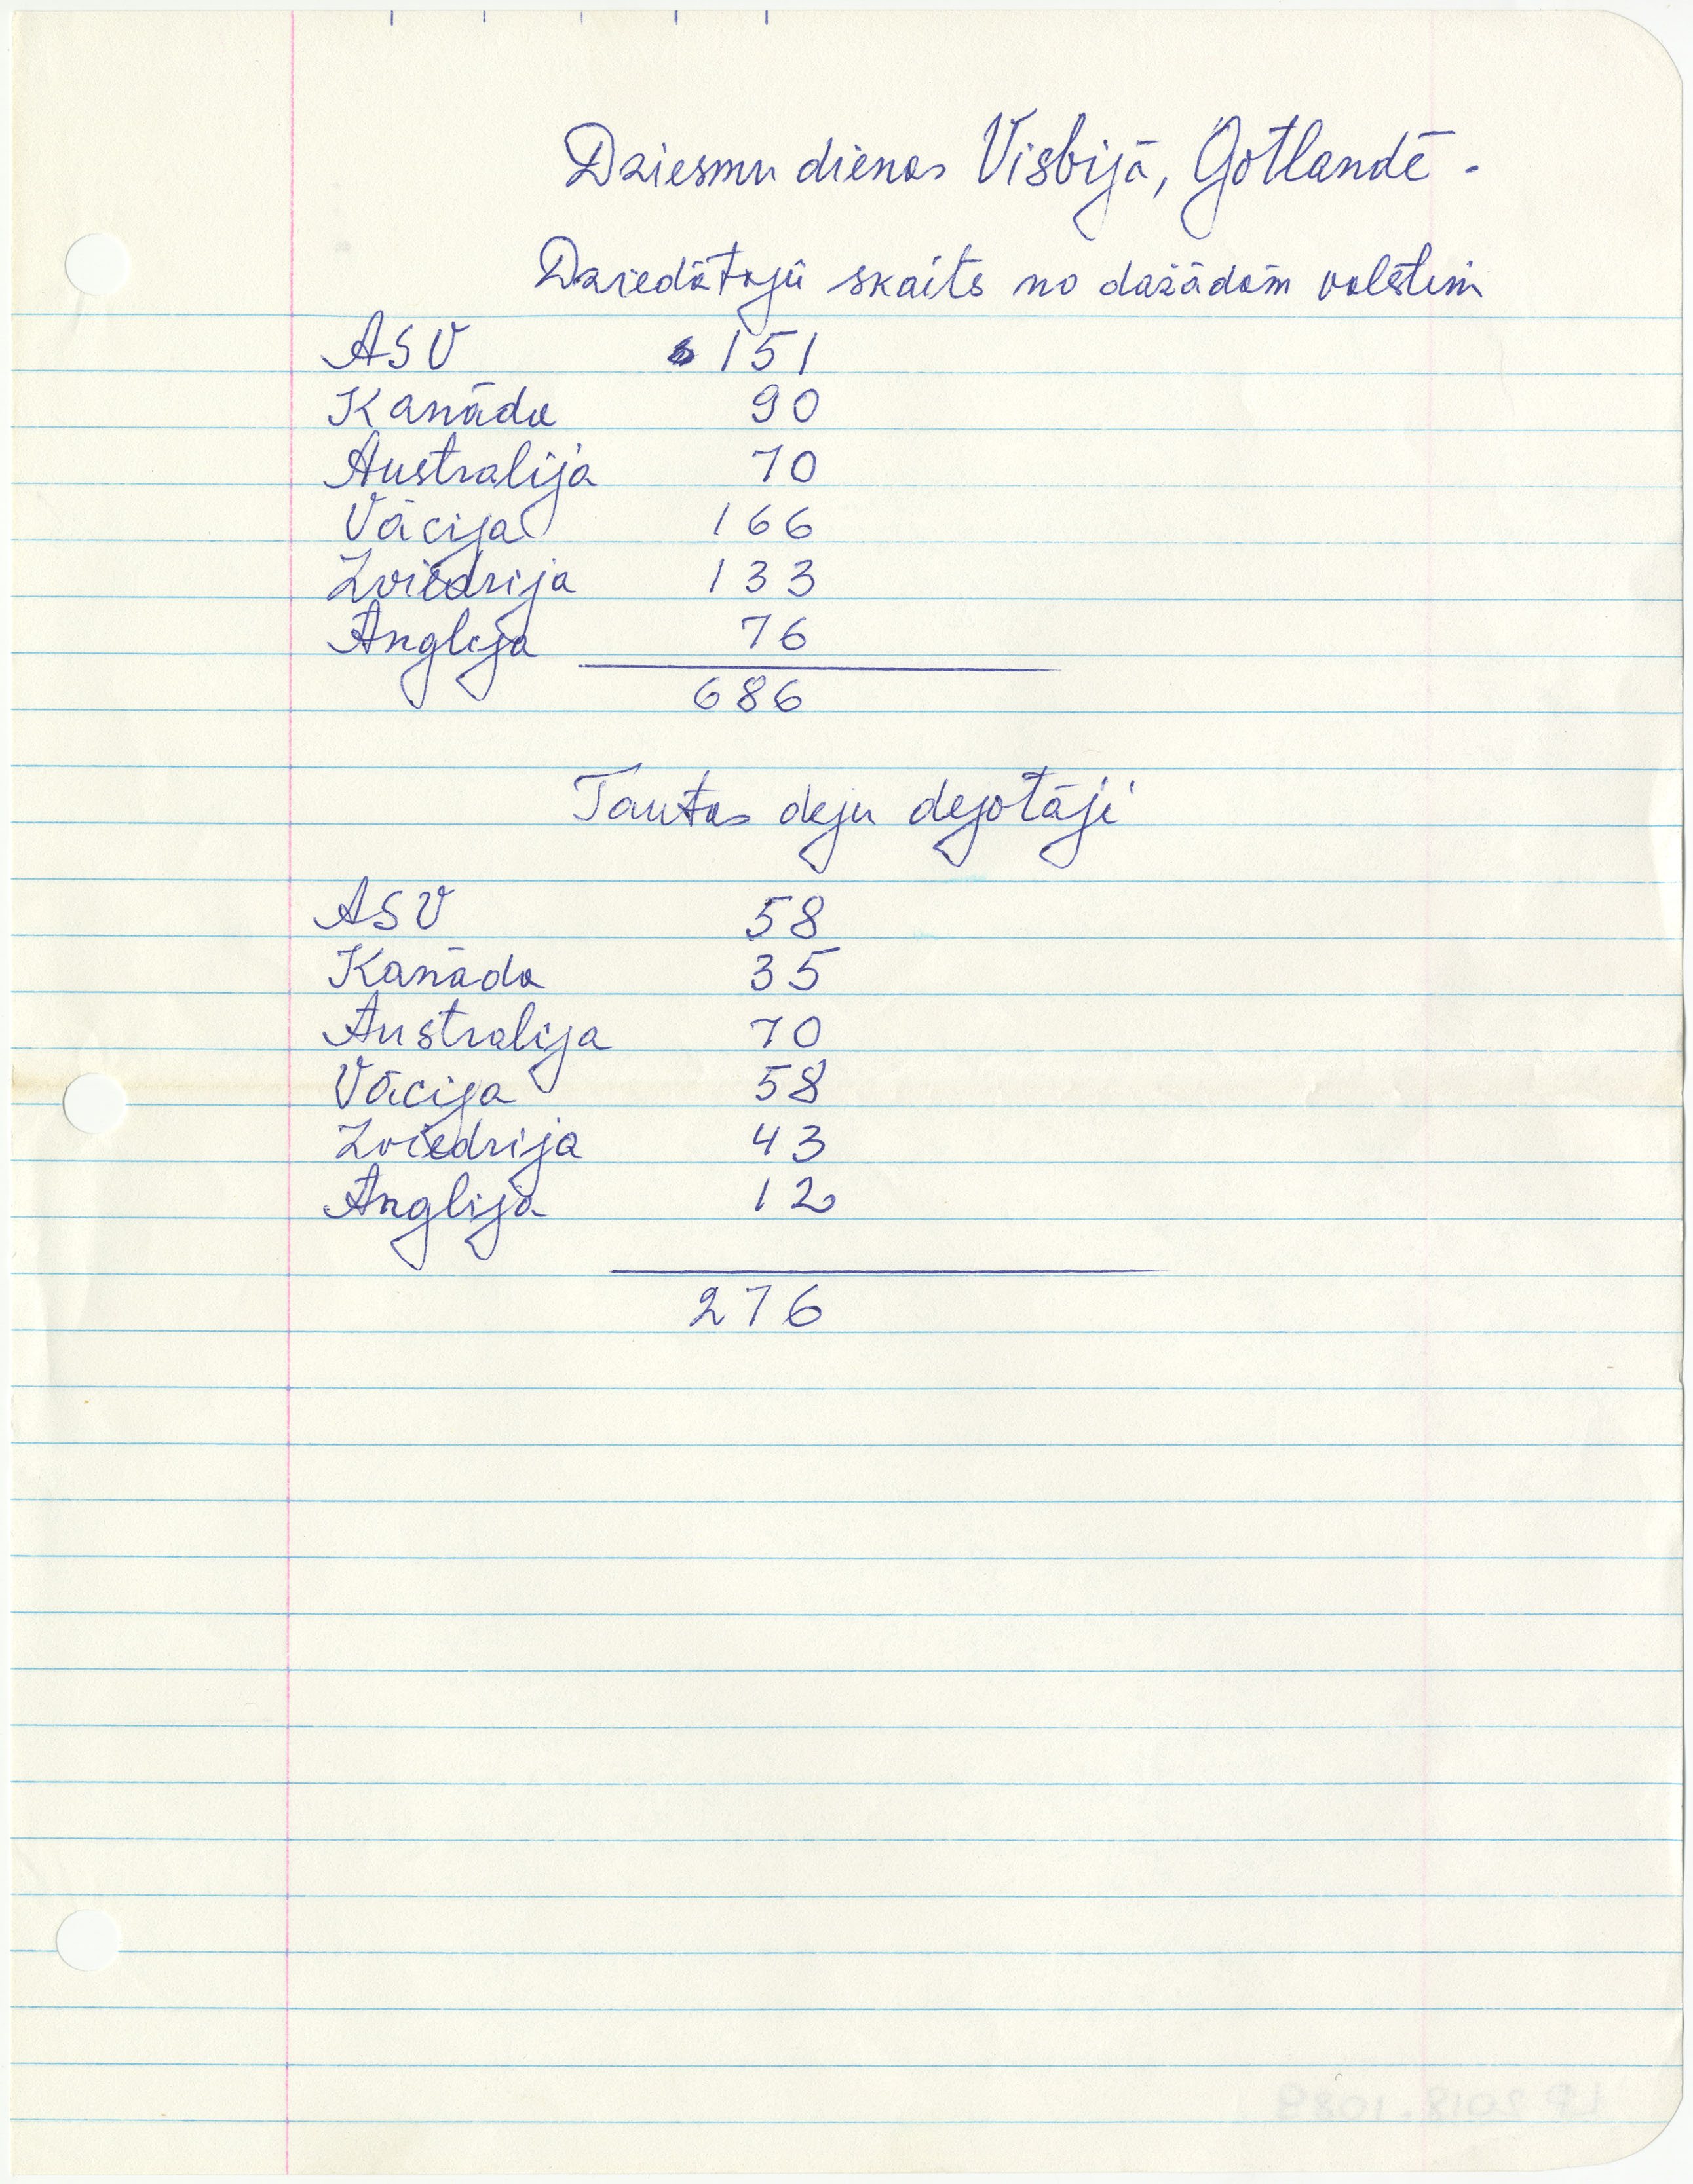 Dziesmu dienas Visbijā, Gotlandē.
Dziedātāju skaits no dažādām valstīm
ASV 151
Kanāda 90
Australija 70
Vācija 166
Zviedrija 133
Anglija 76
686
Tautas deju dejotāji
ASV 58
Kanāda 35
Australija 70
Vācija 58
Zviedrija 43
Anglija 12
276
LP 2018.1089